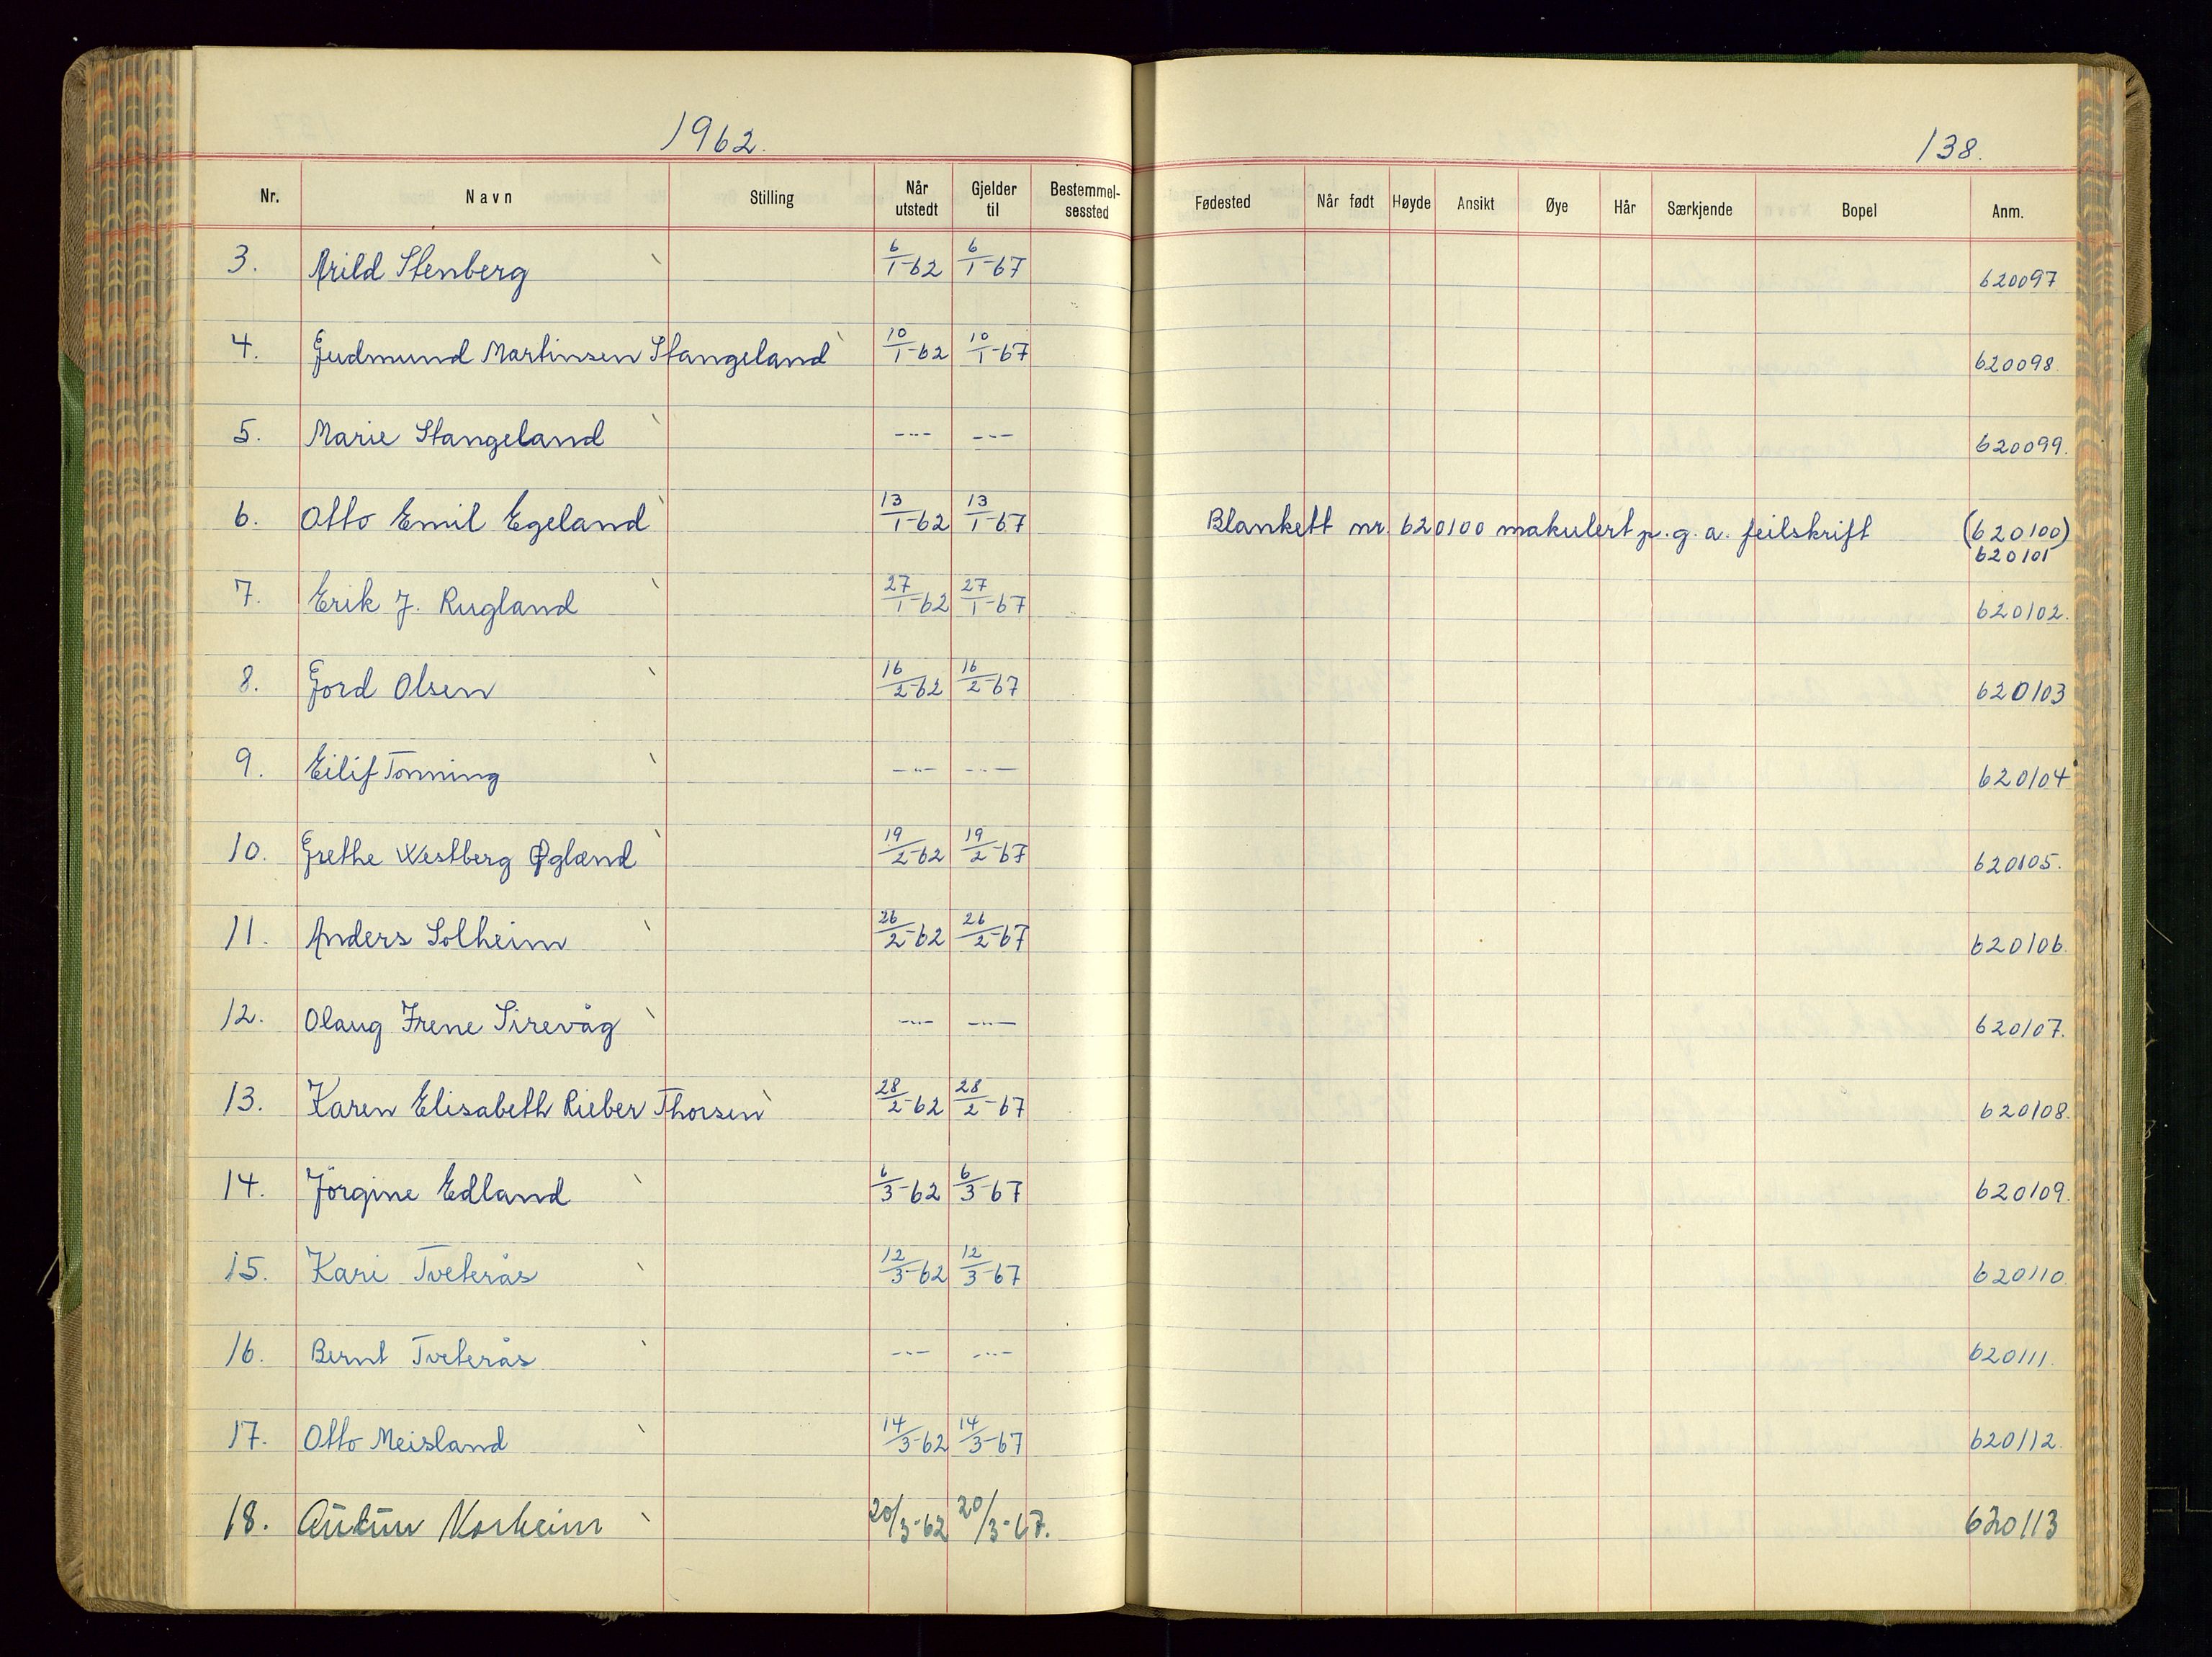 1962.
138.
Nr. Navn Stilling Når utstedt Gjelder til Bestemmel-sessted Fødested Når født Høyde Ansikt Øye Hår Særkjende Bopel Anm.
3. Arild Stenberg 6/1-62 6/1-67 620097
4. Gudmund Martinsen Stangeland 10/1-62 10/1-67 620098
5. Marie Stangeland --- --- 620099.
6. Otto Emil Egeland 13/1-62 13/1-67 Blankett nr. 620100 makulert p.g.a. feilskrift (620100)
620101
7. Erik J. Rugland 27/1-62 27/1-67 620102.
8. Gord Olsen 16/2-62 16/2-67 620103
9. Eilif Tonning --- --- 620104
10. Grethe Westberg Øgland 19/2-62 19/2-67 620105.
11. Anders Solheim 26/2-62 26/2-67 620106.
12. Olaug Irene Sirevåg --- --- 620107.
13. Karen Elisabeth Rieber Thorsen 28/2-62 28/2-67 620108.
14. Jörgine Edland 6/3-62 6/3-67 620109.
15. Kari Tveterås 12/3-62 12/3-67 620110
16. Bernt Tveterås --- --- 620111.
17. Otto Meisland 14/3-62 14/3-67 620112.
18. 20/3-62 20/3-67. 620113